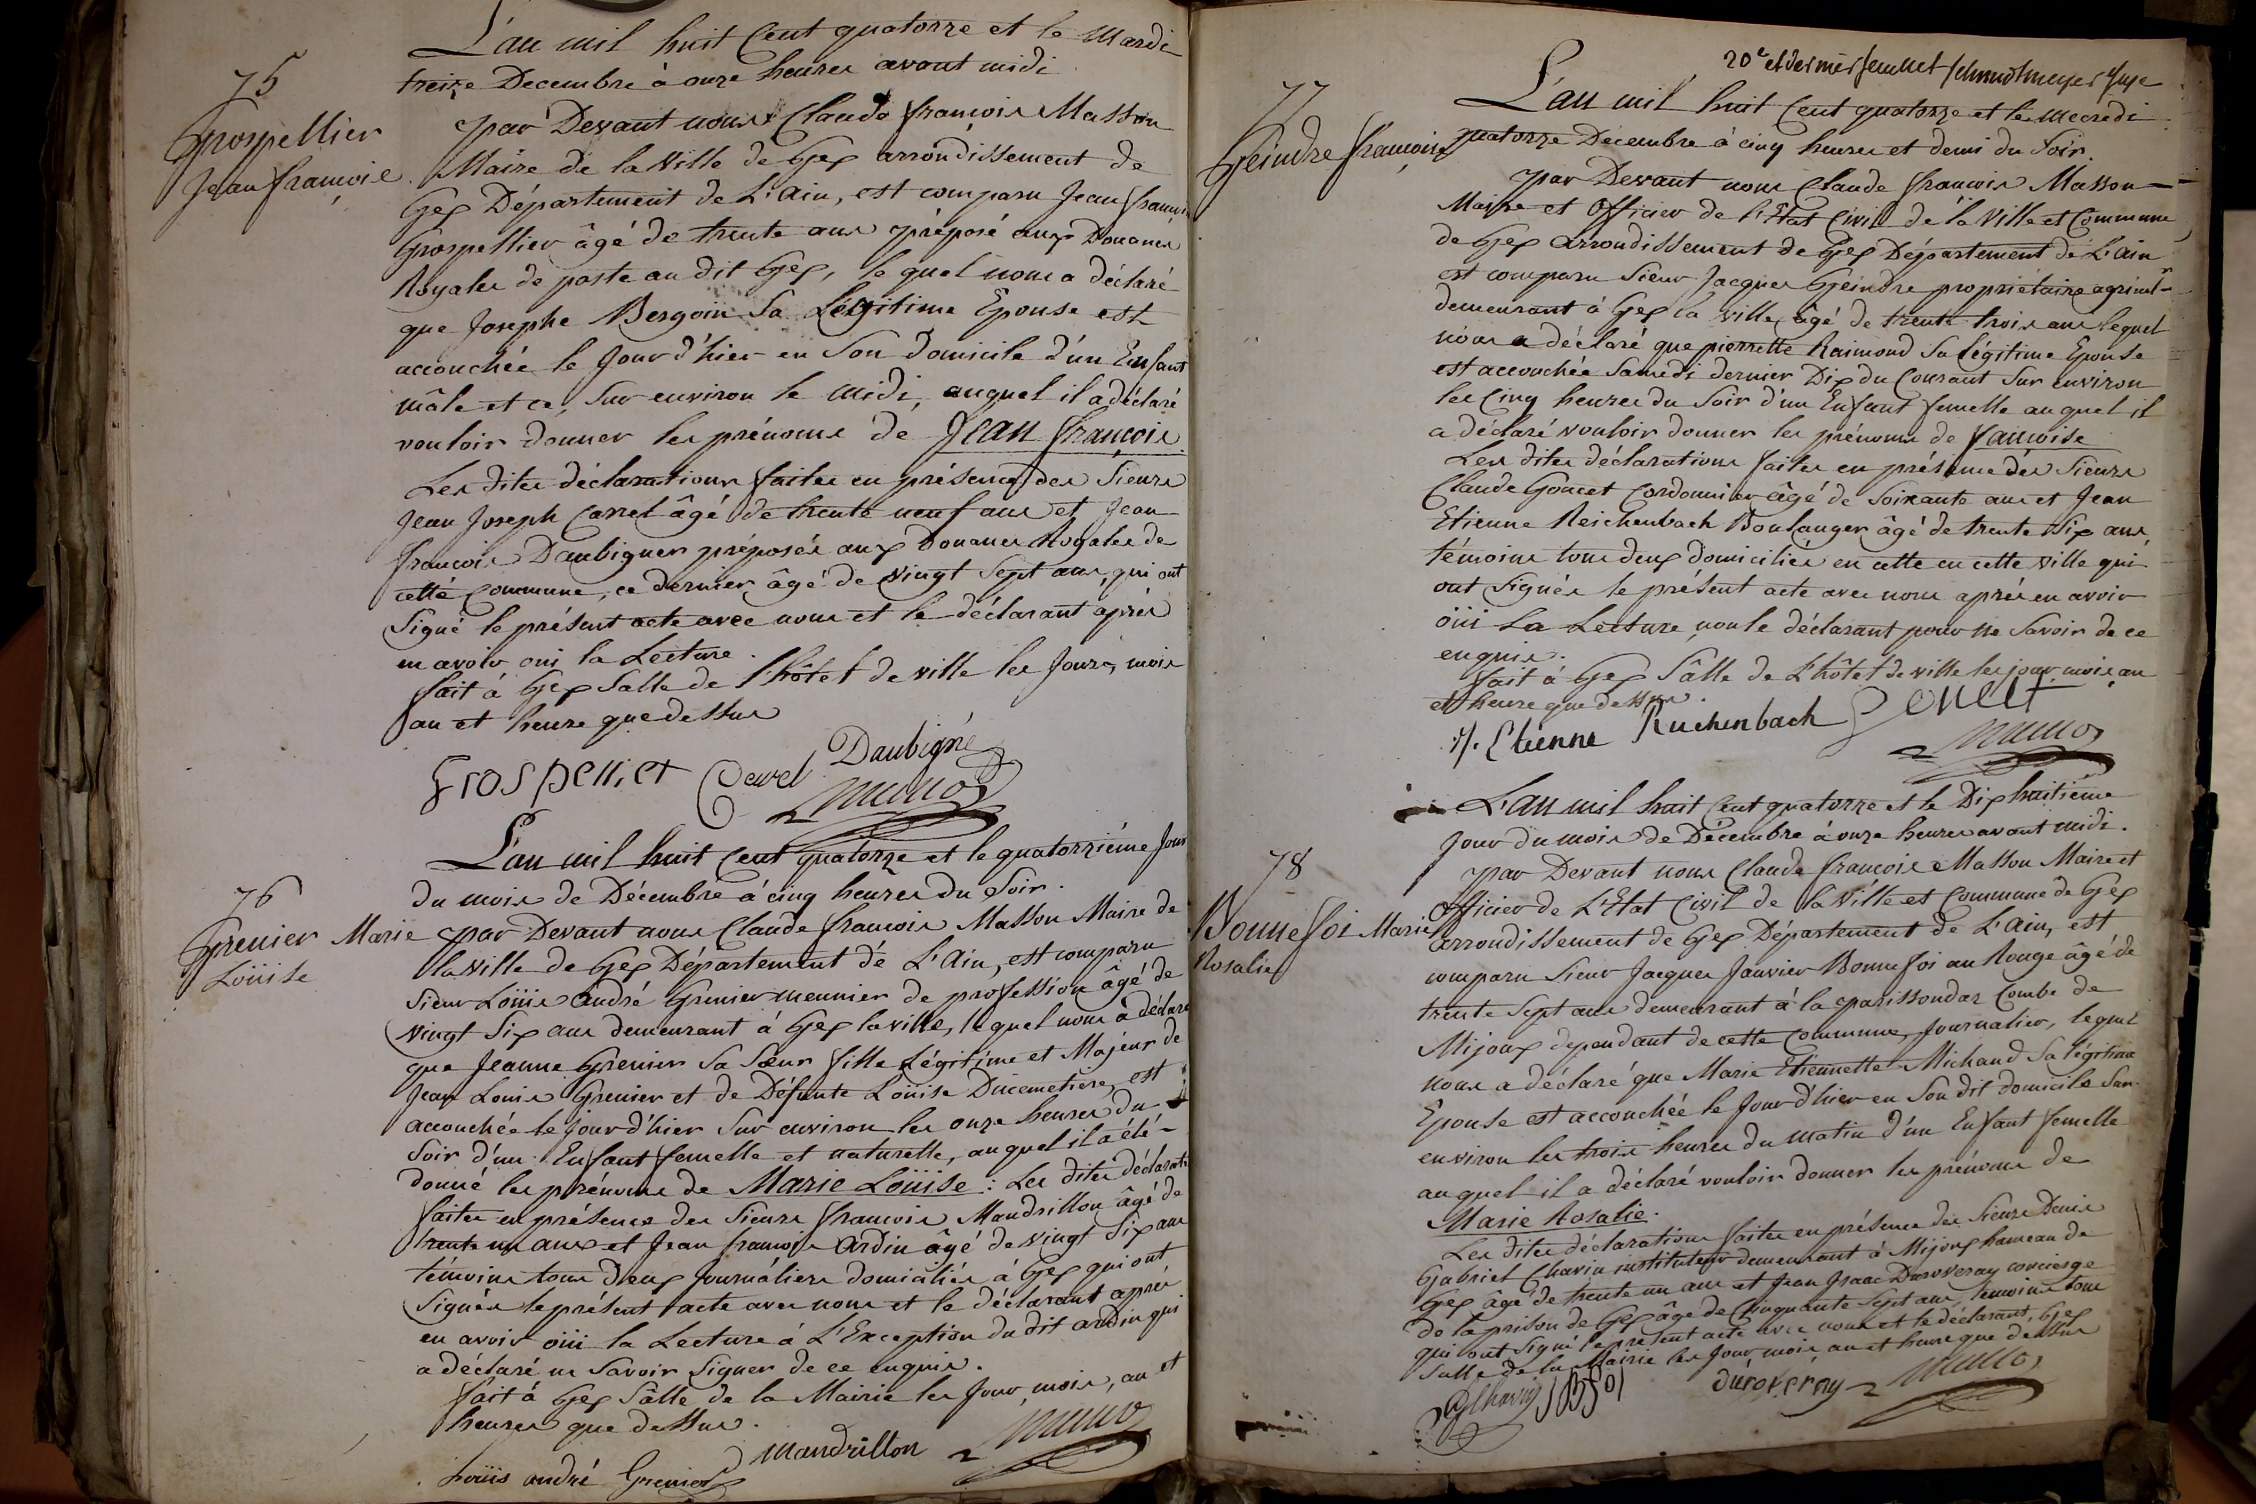 L'an mil huit Cent quatorze et le Mardi
treize Decembre à onze heures avant midi
75
Grospellier
Jean françois
par Devant nous Claude françois Masson
Maire de la Ville de Gex arrondissement de
Gex Département de L'Ain, est comparu Jean françois
Grospellier âgé de trente ans préposé aux Douanes
Royales de poste au dit Gex, le quel nous a déclaré
que Josephe Bergoin Sa Légitime Epouse est
accouchée le Jour d'hier en Son domicile d'un Enfant
mâle et ce, Sur environ le midi, auquel il a déclaré
vouloir donner les prénoms de Jean françois
Les dites déclarations faites en présence des Sieurs
Jean Joseph Carrel âgé de trente neuf ans et Jean
françois Daubigner préposés aux Douanes Royales de
cette Commune, ce dernier âgé de vingt Sept ans, qui ont
Signé le présent acte avec nous et le déclarant après
en avoir oui la Lecture.
fait à Gex Salle de l'hôtel de ville les Jours, mois
an et heure que dessus
Grospellier Carrel Daubigné
76
Grenier Marie
Loüise
L'an mil huit Cent quatorze et le quatorzième Jour
du mois de Décembre à cinq heures du Soir.
par Devant nous Claude françois Masson Maire de
la Ville de Gex Département de L'Ain, est comparu
Sieur Loüis André Grenier meunier de profession âgé de
vingt Six ans demeurant à Gex la ville, le quel nous a déclaré
que Jeanne Grenier Sa Sœur fille Légitime et Majeur de
Jean Louis Grenier et de Défunte Loüise Ducemetière, est
accouchée le jour d'hier Sur environ les onze heures du
Soir d'un Enfant femelle et naturelle, auquel il a été
donné les prénoms de Marie Loüise : Les dites déclarations
faites en présence des Sieurs françois Mandrillon âgé de
trente un ans et Jean françois Ardin âgé de vingt Six ans
témoins tous deux Journáliers domiciliés à Gex qui ont
Signés le présent acte avec nous et le déclarant après
en avoir oüi la Lecture à L'Exception du dit ardin qui
a déclaré ne Savoir Signer de ce enquis.
fait à Gex Sâlle de la Mairie les Jour, mois, an et
heures que dessus.
Loüis andré Grenier Mandrillon
20e et dernier feuillet Schmidtmeyer Juge
77
Geindre françoise
L'an mil huit Cent quatorze et le mecredi
quatorze Décembre à cinq heures et demi du Soir.
par Devant nous Claude françois Masson
Maire et Officier de l'Etat Civil de la Ville et Commune
de Gex arrondissement de Gex Département de L'ain
est comparu Sieur Jacques Geindre propriétaire agricult.r
demeurant à Gex la ville, âgé de trente trois ans lequel
nous a déclaré que pierrette Raimond Sa légitime Epouse
est accouchée Samedi dernier Dix du Courant Sur environ
les Cinq heures du Soir d'un Enfant femelle auquel il
a déclaré vouloir donner les prénoms de fancoise
Les dites déclarations faites en présence des Sieurs
Claude Goncet Cordonnier âgé de Soixante ans et Jean
Etienne Reichenbach Boulanger âgé de trente Six ans,
témoins tous deux domiciliés en cette en cette ville qui
ont Signés le présent acte avec nous après en avoir
öüi La Lecture, non le déclarant pour ne Savoir de ce
enquis.
fait à Gex Sâlle de L'hôtel de ville les jour, mois, an
et heure que dessus.
J. Etienne Ruchenbach
78
Bonnefoi Marie
Rosalie
L'an mil huit Cent quatorze et le Dix huitième
Jour du mois de Décembre à onze heures avant midi.
par Devant nous Claude françois Masson Maire et
Officier de L'Etat Civil de la Ville et Commune de Gex
arrondissement de Gex Département de L'Ain, est
comparu Sieur Jacques Janvier Bonnefoi au Rouge âgé de
trente Sept ans demeurant à la Combe de
Mijoux dependant de cette Commune, Journalier, lequel
nous a déclaré que Marie Etiennette Michaud Sa légitime
Epouse est accouchée le Jour d'hier en Son dit domicile Sur
environ les trois heures du matin d'un Enfant femelle
auquel il a déclaré vouloir donner les prénoms de
Marie Rosalie.
Les dites déclarations faites en présence des Sieurs Denis
Gabriel Chavin instituteur demeurant à Mijoux hameau de
Gex âgé de trente un ans et Jean Isaac Duroveray concierge
de la prison de Gex âgé de Cinquante Sept ans, témoins tous
qui ont Signé le présent acte avec nous et le déclarant, Gex
Salle de la Mairie les Jour, mois an et heure que dessus
duroveray